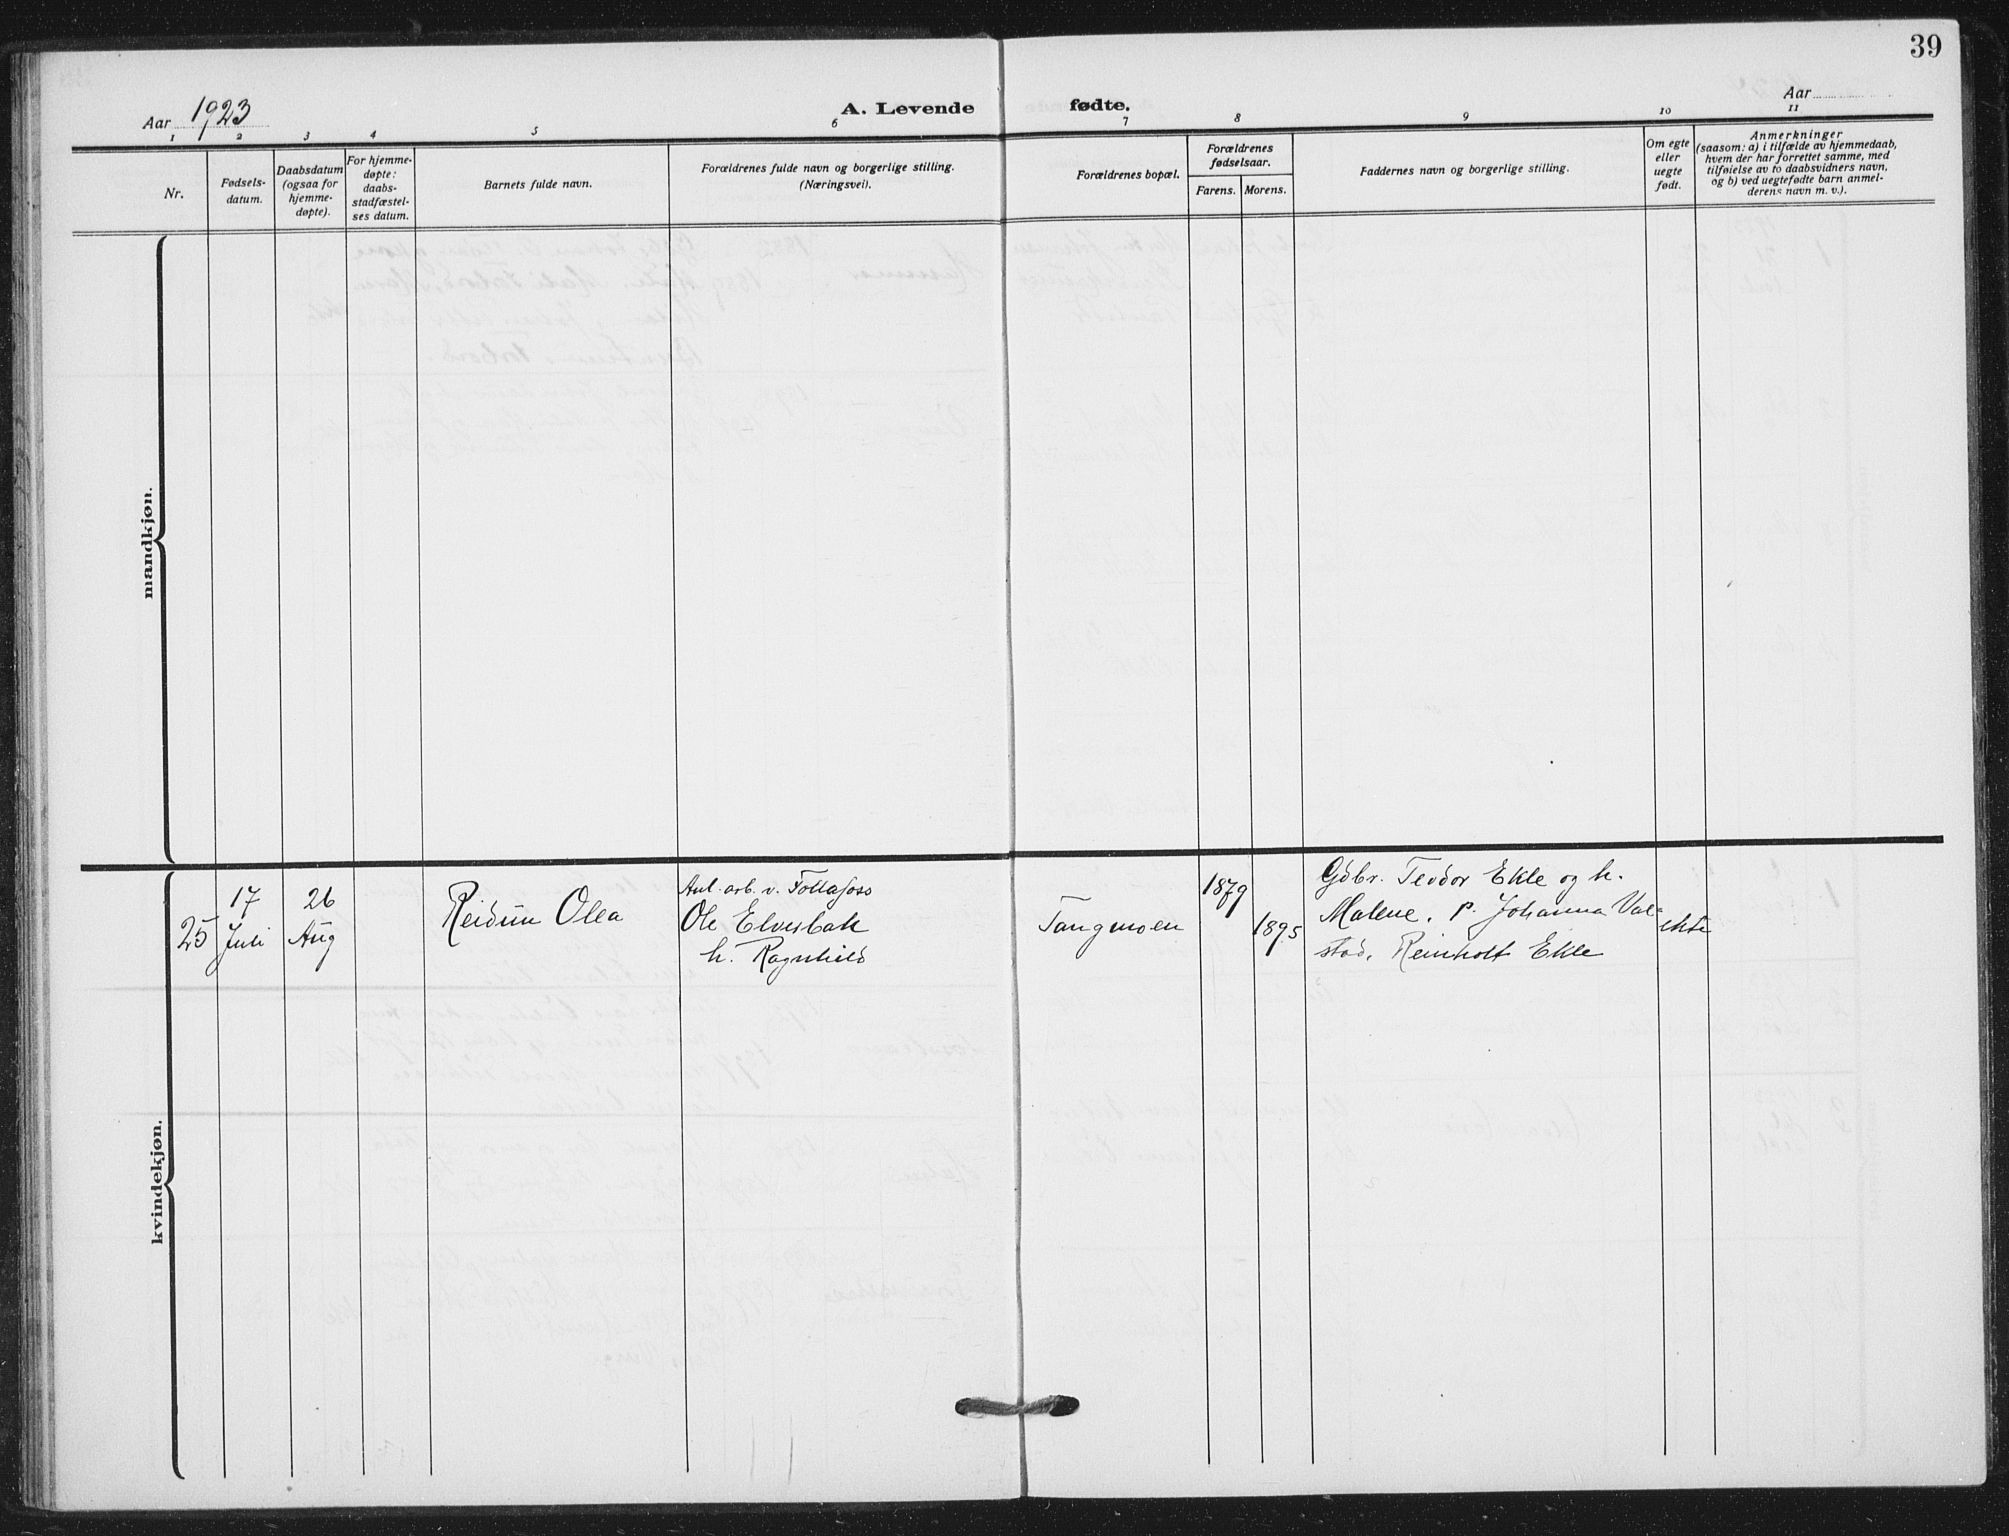 39
Aar 1923
A. Levende fødte.
Aar
1 2 3 4 5 6 7 8 9 10 11
Nr.
Fødsels-
datum.
Daabsdatum
(ogsaa for
hjemme-
døpte).
For hjemme-
døpte:
daabs-
stadfæstel-
ses datum.
Barnets fulde navn.
Forældrenes fulde navn og borgerlige stilling.
(Næringsvei).
Forældrenes bopæl.
Forældrenes
fødselsaar.
Farens. Morens.
Faddernes navn og borgerlige stilling.
Om egte
eller
uegte
født.
Anmerkninger
(saasom: a) i tilfælde av hjemmedaab,
hvem der har forrettet samme, med
tilføielse av to daabsvidners navn,
og b) ved uegtefødte barn anmel-
derens navn m. v.).
mandkjøn.
kvindekjøn.
25
17
Juli
26
Aug
Reidun Olea
Anl. arb. v. Follafoss
Ole Elvesbak
h. Ragnhild
Tangmoen
1879
1895
Gdbr. Teodor Ekle og h.
Malene. P. Johanna Val-
stad, Reinholt Ekle
ekte